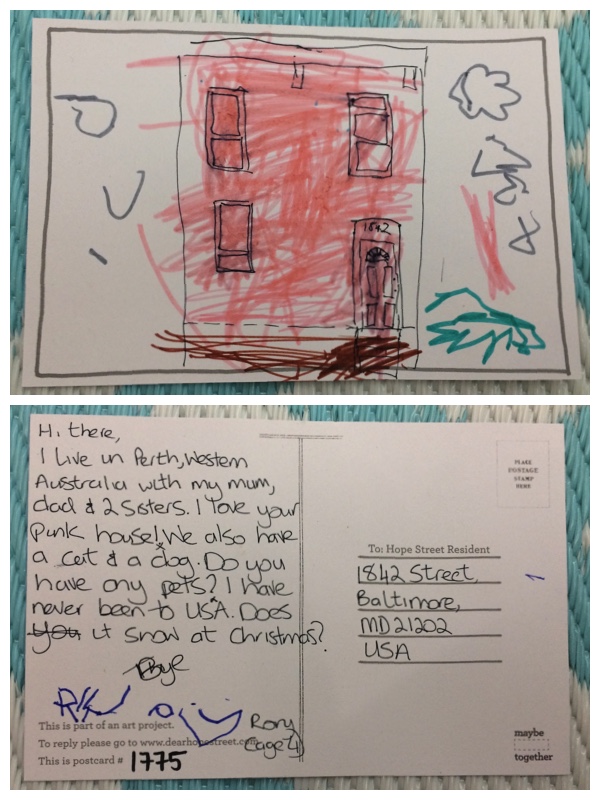 1842
Hi there,
I live in Perth, Western
Australia with my mum,
dad & 2 sisters. I love your
pink house! We also have
a cat & a dog. Do you
have any pets? I have
never been to USA. Does
you it snow at Christmas?
Bye
Rory
(age 4)
This is part of an art project.
To reply please go to www.dearhopestreet.com
This is postcard # 1775
PLACE
POSTAGE
STAMP
HERE
To: Hope Street Resident
1842 Street,
Baltimore,
MD 21202
USA
maybe
together